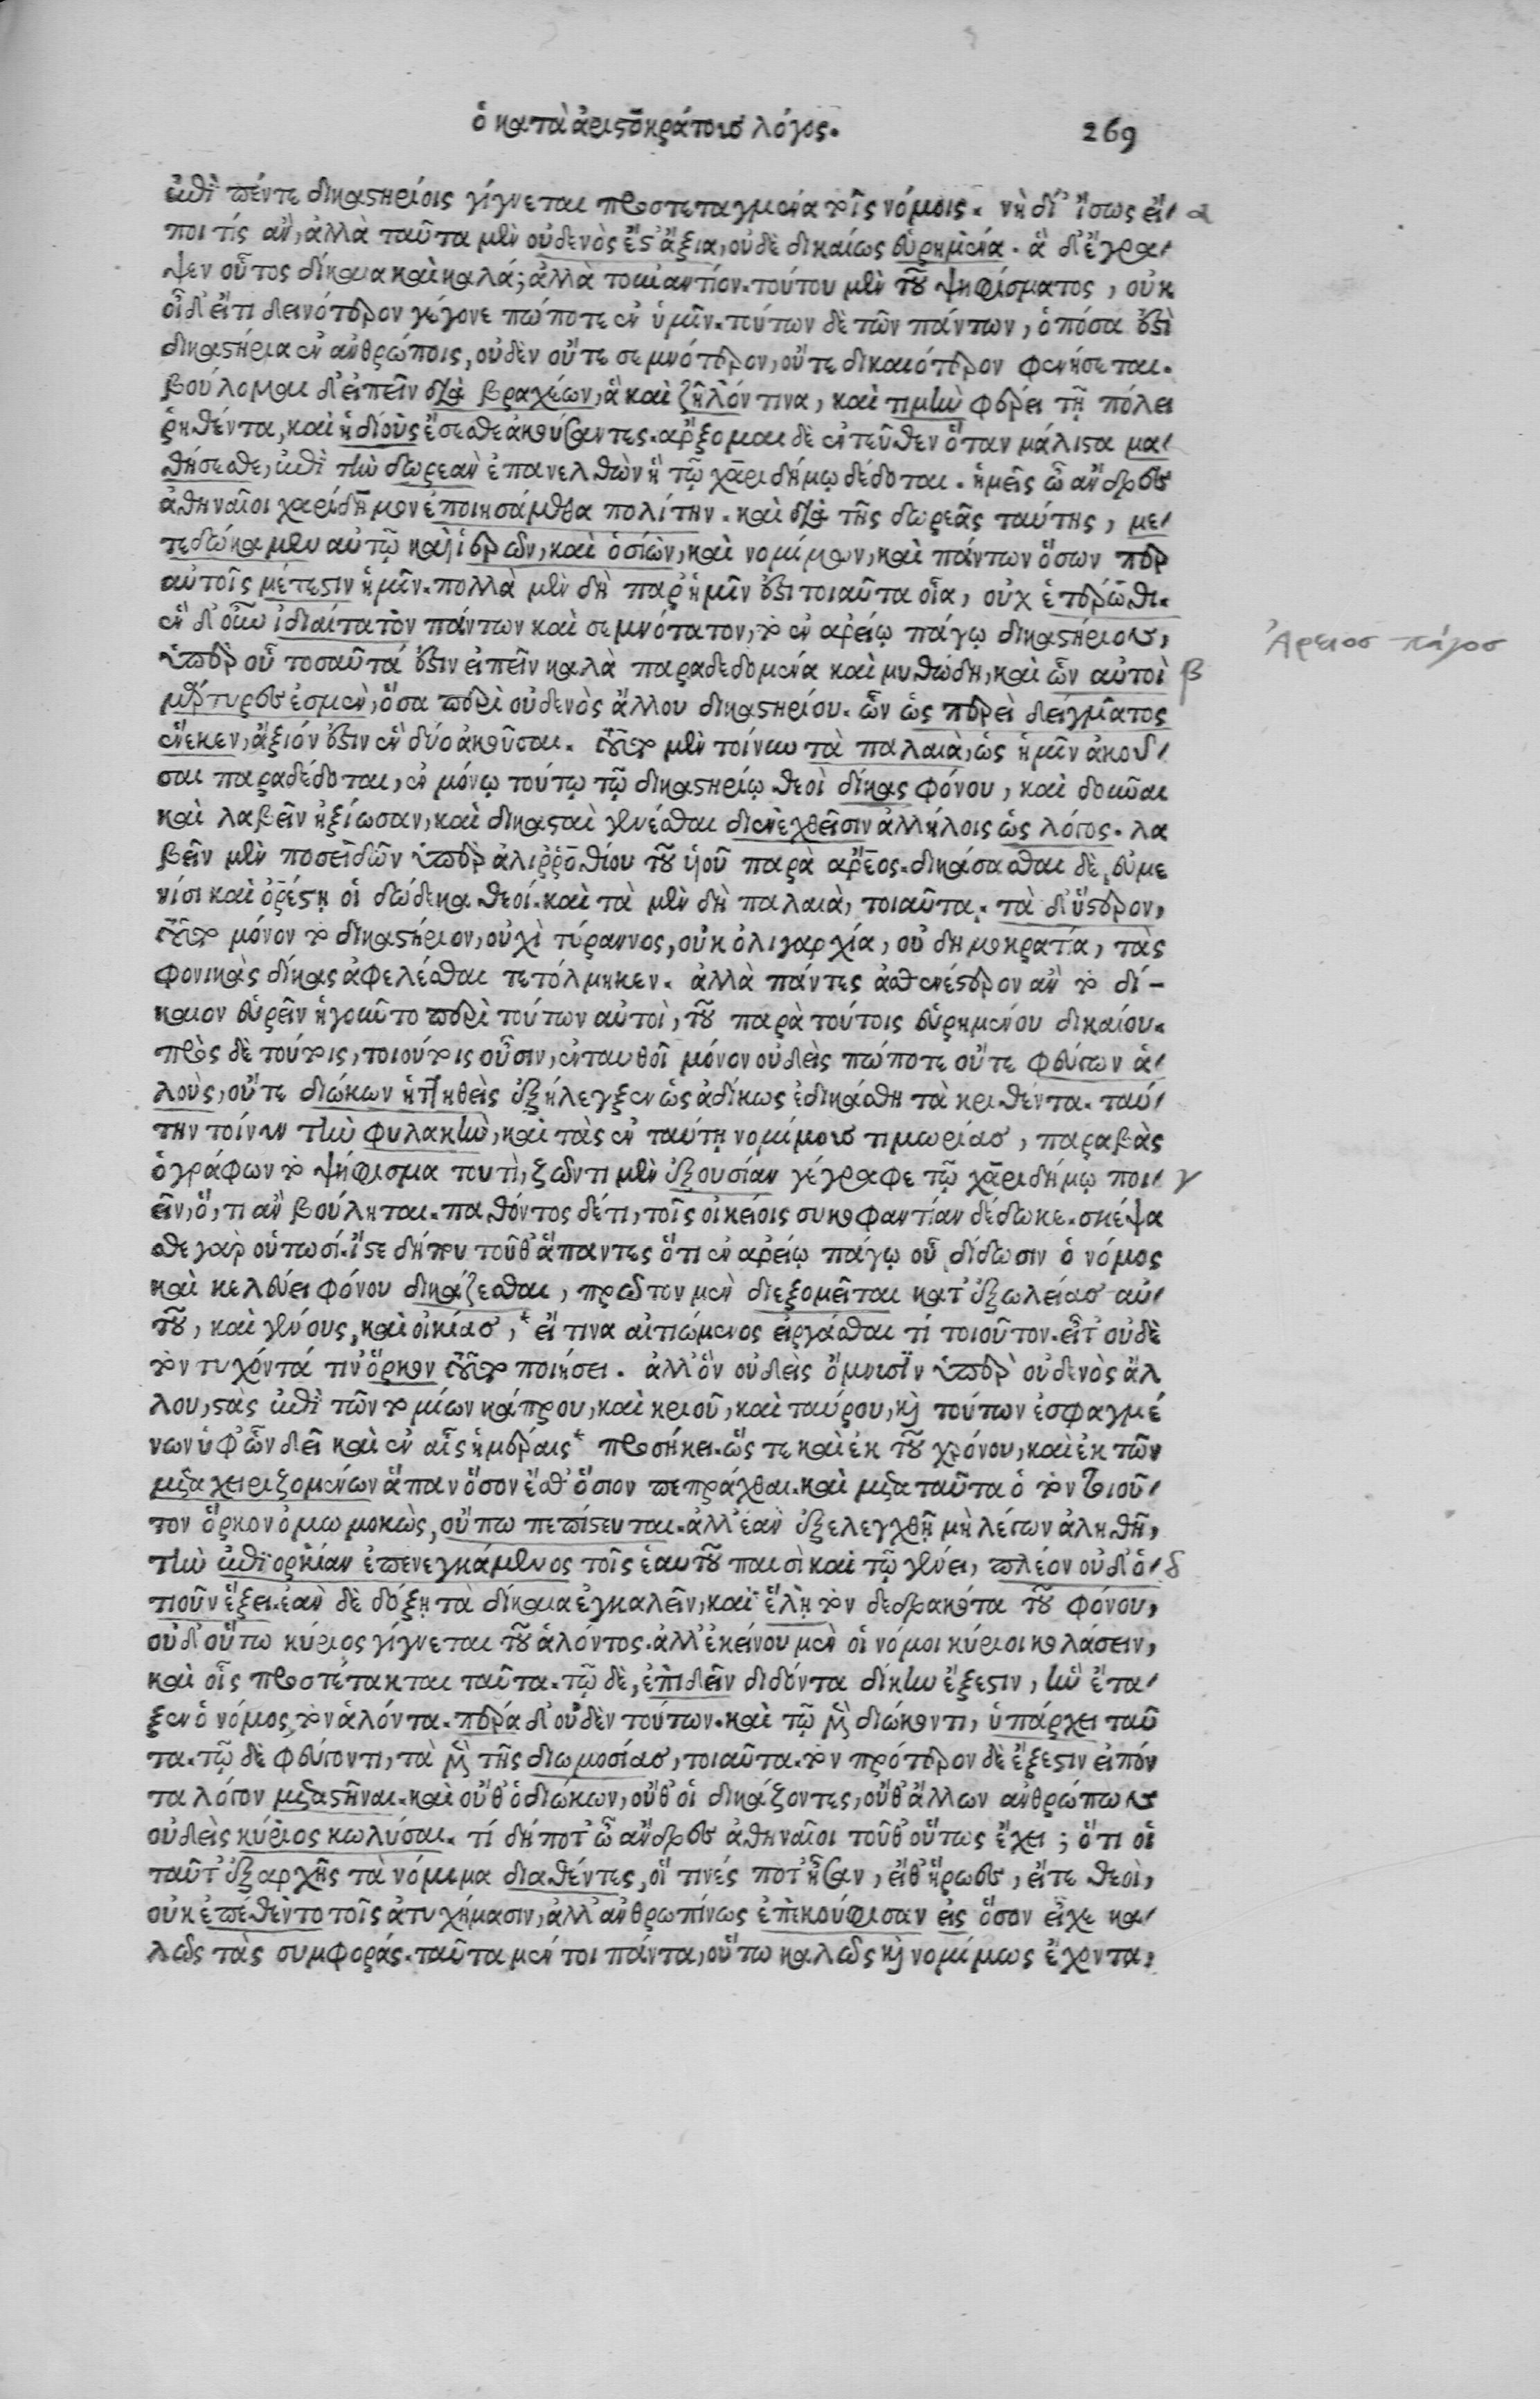 ὁ κατὰ ἀριστοκράτους λόγος. 269
ἐπὶ πέντε δικαστηρίοις γίγνεται προστεταγμένα τοῖς νόμοις. νὴ δί' ἴσως εἴ α
ποι τίς ἂν, ἀλλὰ ταῦτα μὲν οὐδενὸς ἔστ' ἄξια, οὐδὲ δικαίως εὑρημένα. ἃ δ' ἔγρα
ψεν οὗτος δίκαια καὶ καλά; ἀλλὰ τοὐναντίον. τούτου μὲν τοῦ ψηφίσματος, οὐκ
οἶδ' εἴ τι δεινότερον γέγονε πώποτε ἐν ὑμῖν. τούτων δὲ τῶν πάντων, ὁπόσα ἐστὶ
δικαστήρια ἐν ἀνθρώποις, οὐδὲν οὔτε σεμνότερον, οὔτε δικαιότερον φανήσεται.
βούλομαι δ' εἰπεῖν διὰ βραχέων, ἃ καὶ ζῆλόν τινα, καὶ τιμὴν φέρει τῇ πόλει
ῥηθέντα, καὶ ἡδίους ἔσεσθε ἀκούσαντες. ἄρξομαι δὲ ἐντεῦθεν ὅταν μάλιστα μα
θήσεσθε, ἐπὶ τὴν δωρεὰν ἐπανελθὼν ἣ τῷ χαριδήμῳ δέδοται. ἡμεῖς ὦ ἄνδρες
ἀθηναῖοι χαρίδημον ἐποιησάμεθα πολίτην. καὶ διὰ τῆς δωρεᾶς ταύτης, με
τεδώκαμεν αὐτῷ καὶ ἱερῶν, καὶ ὁσίων, καὶ νομίμων, καὶ πάντων ὅσων περ
αὐτοῖς μέτεστιν ἡμῖν. πολλὰ μὲν δὴ παρ' ἡμῖν ἐστι τοιαῦτα οἷα, οὐχ ἑτέρωθι.
ἓν δ' οὖν ἰδιαίτατον πάντων καὶ σεμνότατον, τὸ ἐν ἀρείῳ πάγῳ δικαστήριον, Ἄρειος πάγος
ὑπὲρ οὗ τοσαῦτά ἐστιν εἰπεῖν καλὰ παραδεδομένα καὶ μυθώδη, καὶ ὧν αὐτοὶ β
μάρτυρες ἐσμὲν, ὅσα περὶ οὐδενὸς ἄλλου δικαστηρίου. ὧν ὡς περεὶ δείγματος
ἕνεκεν, ἄξιόν ἐστιν ἓν δύο ἀκοῦσαι. τοῦτο μὲν τοίνυν τὰ παλαιὰ, ὡς ἡμῖν ἀκοῦ
σαι παραδέδοται, ἐν μόνῳ τούτῳ τῷ δικαστηρίῳ θεοὶ δίκας φόνου, καὶ δοῦναι
καὶ λαβεῖν ἠξίωσαν, καὶ δικασταὶ γενέσθαι διενεχθεῖσιν ἀλλήλοις ὡς λόγος. λα
βεῖν μὲν ποσειδῶν ὑπὲρ ἁλιῤῥοθίου τοῦ ὑιοῦ παρὰ ἄρεος. δικάσασθαι δὲ, εὐμε
νίσι καὶ ὀρέστῃ οἱ δώδεκα θεοί. καὶ τὰ μὲν δὴ παλαιὰ, τοιαῦτα. τὰ δ' ὕστερον,
τοῦτο μόνον τὸ δικαστήριον, οὐχὶ τύραννος, οὐκ ὀλιγαρχία, οὐ δημοκρατία, τὰς
φονικὰς δίκας ἀφελέσθαι τετόλμηκεν. ἀλλὰ πάντες ἀσθενέστερον ἂν τὸ δί-
καιον εὑρεῖν ἡγοῦντο περὶ τούτων αὐτοὶ, τοῦ παρὰ τούτοις εὑρημένου δικαίου.
πρὸς δὲ τούτοις, τοιούτοις οὖσιν, ἐνταυθοῖ μόνον οὐδεὶς πώποτε οὔτε φεύγων ἁ
λοὺς, οὔτε διώκων ἡττηθεὶς ἐξήλεγξεν ὡς ἀδίκως ἐδικάσθη τὰ κριθέντα. ταύ
την τοίνυν τὴν φυλακὴν, καὶ τὰς ἐν ταύτῃ νομίμους τιμωρίας, παραβὰς
ὁ γράφων τὸ ψήφισμα τουτὶ, ζῶντι μὲν ἐξουσίαν γέγραφε τῷ χαριδήμῳ ποι γ
εῖν, ὅ, τι ἂν βούληται. παθόντος δέ τι, τοῖς οἰκείοις συκοφαντίαν δέδωκε. σκέψα
σθε γὰρ οὑτωσί. ἴστε δήπου τοῦθ' ἅπαντες ὅτι ἐν ἀρείῳ πάγῳ οὗ δίδωσιν ὁ νόμος
καὶ κελεύει φόνου δικάζεσθαι, πρῶτον μὲν διεξομεῖται κατ' ἐξωλείας αὑ
τοῦ, καὶ γένους, καὶ οἰκίας,* εἴ τινα αἰτιώμενος εἰργάσθαι τί τοιοῦτον. εἶτ' οὐδὲ
τὸν τυχόντά τιν' ὅρκον τοῦτο ποιήσει. ἀλλ' ὃν οὐδεὶς ὄμνυσιν ὑπὲρ οὐδενὸς ἄλ
λου, στὰς ἐπὶ τῶν τομίων κάπρου, καὶ κριοῦ, καὶ ταύρου, καὶ τούτων ἐσφαγμέ
νων ὑφ' ὧν δεῖ καὶ ἐν αἷς ἡμέραις* προσήκει. ὥστε καὶ ἐκ τοῦ χρόνου, καὶ ἐκ τῶν
μεταχειριζομένων ἅπαν ὅσον ἔσθ' ὅσιον πεπράχθαι. καὶ μετα ταῦτα ὁ τὸν τοιοῦ
τον ὅρκον ὀμωμοκὼς, οὔπω πεπίστευται. ἀλλ' ἐὰν ἐξελεγχθῇ μὴ λέγων ἀληθῆ,
τὴν ἐπιορκίαν ἐπενεγκάμενος τοῖς ἑαυτοῦ παισὶ καὶ τῷ γένει, πλέον οὐδ' ὁ δ
τιοῦν ἕξει. ἐὰν δὲ δόξῃ τὰ δίκαια ἐγκαλεῖν, καὶ ἕλῃ τὸν δεδρακότα τοῦ φόνου,
οὐδ' οὕτω κύριος γίγνεται τοῦ ἁλόντος. ἀλλ' ἐκείνου μὲν οἱ νόμοι κύριοι κολάσειν,
καὶ οἷς προστέτακται ταῦτα. τῷ δὲ, ἐπιδεῖν διδόντα δίκην ἔξεστιν, ἣν ἔτα
ξεν ὁ νόμος, τὸν ἁλόντα. πέρα δ' οὐδὲν τούτων. καὶ τῷ μὲν διώκοντι, ὑπάρχει ταῦ
τα. τῷ δὲ φεύγοντι, τὰ μὲν τῆς διωμοσίας, τοιαῦτα. τὸν πρότερον δὲ ἔξεστιν εἰπόν
τα λόγον μεταστῆναι. καὶ οὔθ' ὁ διώκων, οὔθ' οἱ δικάζοντες, οὔθ' ἄλλων ἀνθρώπων
οὐδεὶς κύριος κωλῦσαι. τί δήποτ' ὦ ἄνδρες ἀθηναῖοι τοῦθ' οὕτως ἔχει; ὅτι οἱ
ταῦτ' ἐξαρχῆς τὰ νόμιμα διαθέντες, οἵ τινές ποτ' ἦσαν, εἴθ' ἥρωες, εἴτε θεοὶ,
οὐκ ἐπέθεντο τοῖς ἀτυχήμασιν, ἀλλ' ἀνθρωπίνως ἐπεκούφισαν εἰς ὅσον εἶχε κα
λῶς τὰς συμφοράς. ταῦτα μέν τοι πάντα, οὕτω καλῶς καὶ νομίμως ἔχοντα,